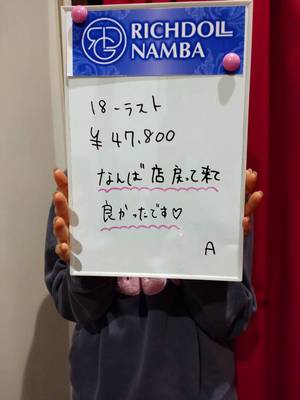 RG
RICHDOLL
NAMBA
18-ラスト
¥47,800
なんば店戻って来て
良かったです♡
A